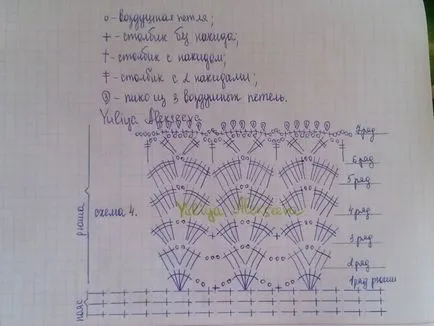 о - воздушная петля;
+ - столбик без накида;
† - столбик с накидом;
‡ - столбик с 2 накидами;
- пико из 3 воздушных петель.
Yuliya Alekseeva
7 ряд
6 ряд
5 ряд
рюша
схема 4.
Yuliya Alekseeva
4 ряд
3 ряд
2 ряд
1 ряд рюши
пояс